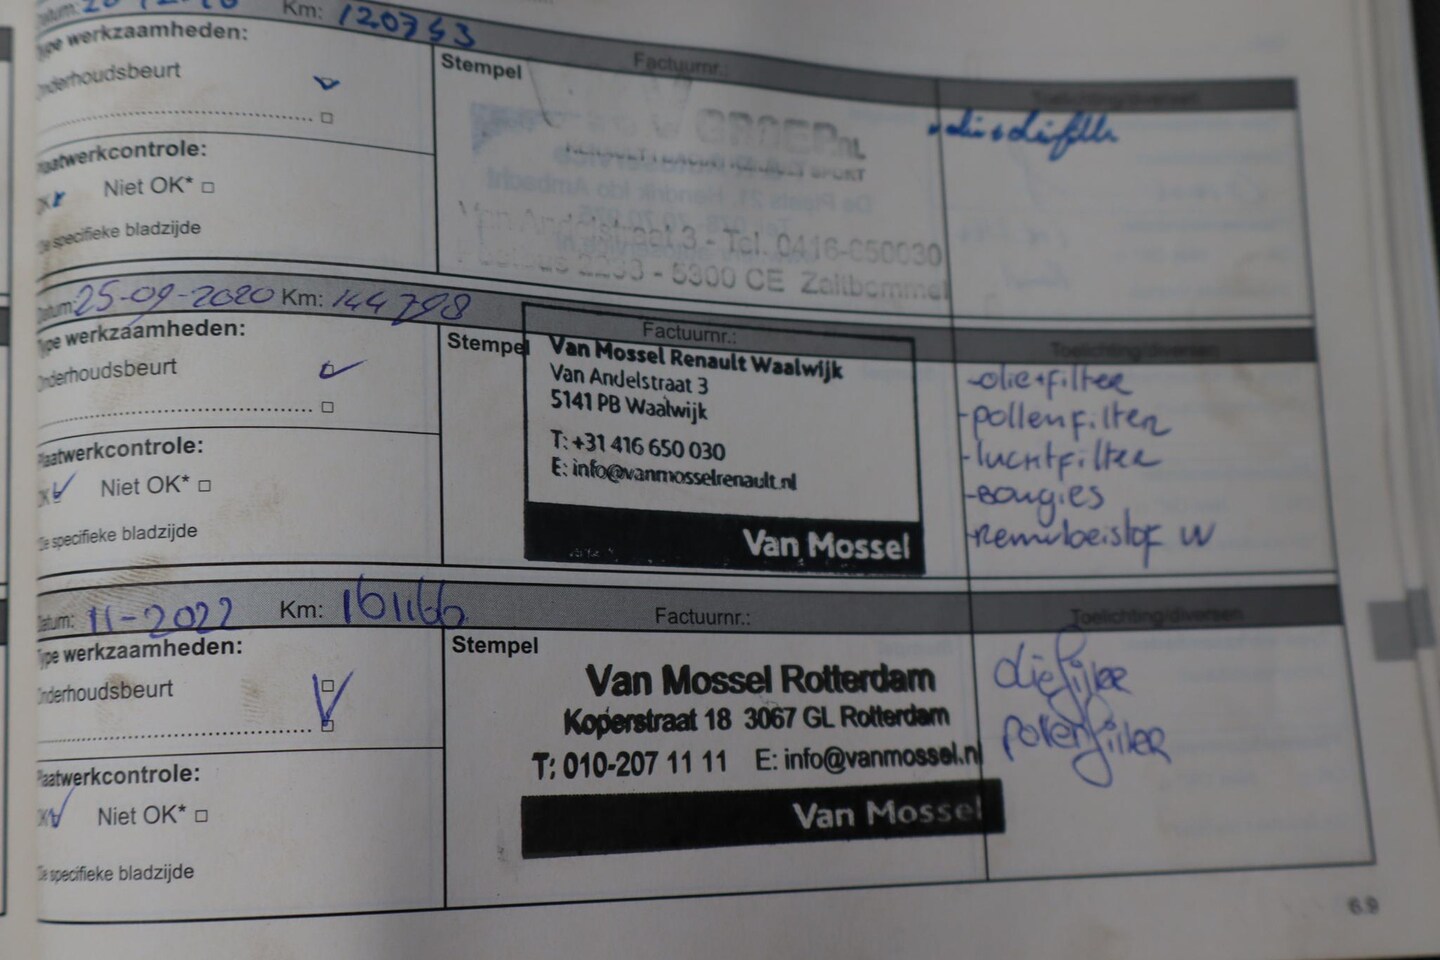 Km: 120753
Type werkzaamheden:
Onderhoudsbeurt
Stempel
Factuurnr.:
Toelichting/diversen
GROEP.NL
Plaatwerkcontrole:
OK Niet OK*
Zie specifieke bladzijde
Van Andelstraat 3 - Tel. 0416-650030
5300 CE Zaltbommel
Datum: 25-09-2020 Km: 144798
Type werkzaamheden:
Onderhoudsbeurt
Stempel
Factuurnr.:
Toelichting/diversen
Van Mossel Renault Waalwijk
Van Andelstraat 3
5141 PB Waalwijk
T: +31 416 650 030
E: info@vanmosselrenault.nl
Van Mossel
-olie+filter
-pollenfilter
-luchtfilter
-Bougies
-Remvloeistof W
Plaatwerkcontrole:
OK Niet OK*
Zie specifieke bladzijde
Datum: 11-2022 Km: 161166
Type werkzaamheden:
Onderhoudsbeurt
Stempel
Factuurnr.:
Toelichting/diversen
Van Mossel Rotterdam
Koperstraat 18 3067 GL Rotterdam
T: 010-207 11 11 E: info@vanmossel.nl
Van Mossel
pollenfilter
Plaatwerkcontrole:
OK Niet OK*
Zie specifieke bladzijde
6.9